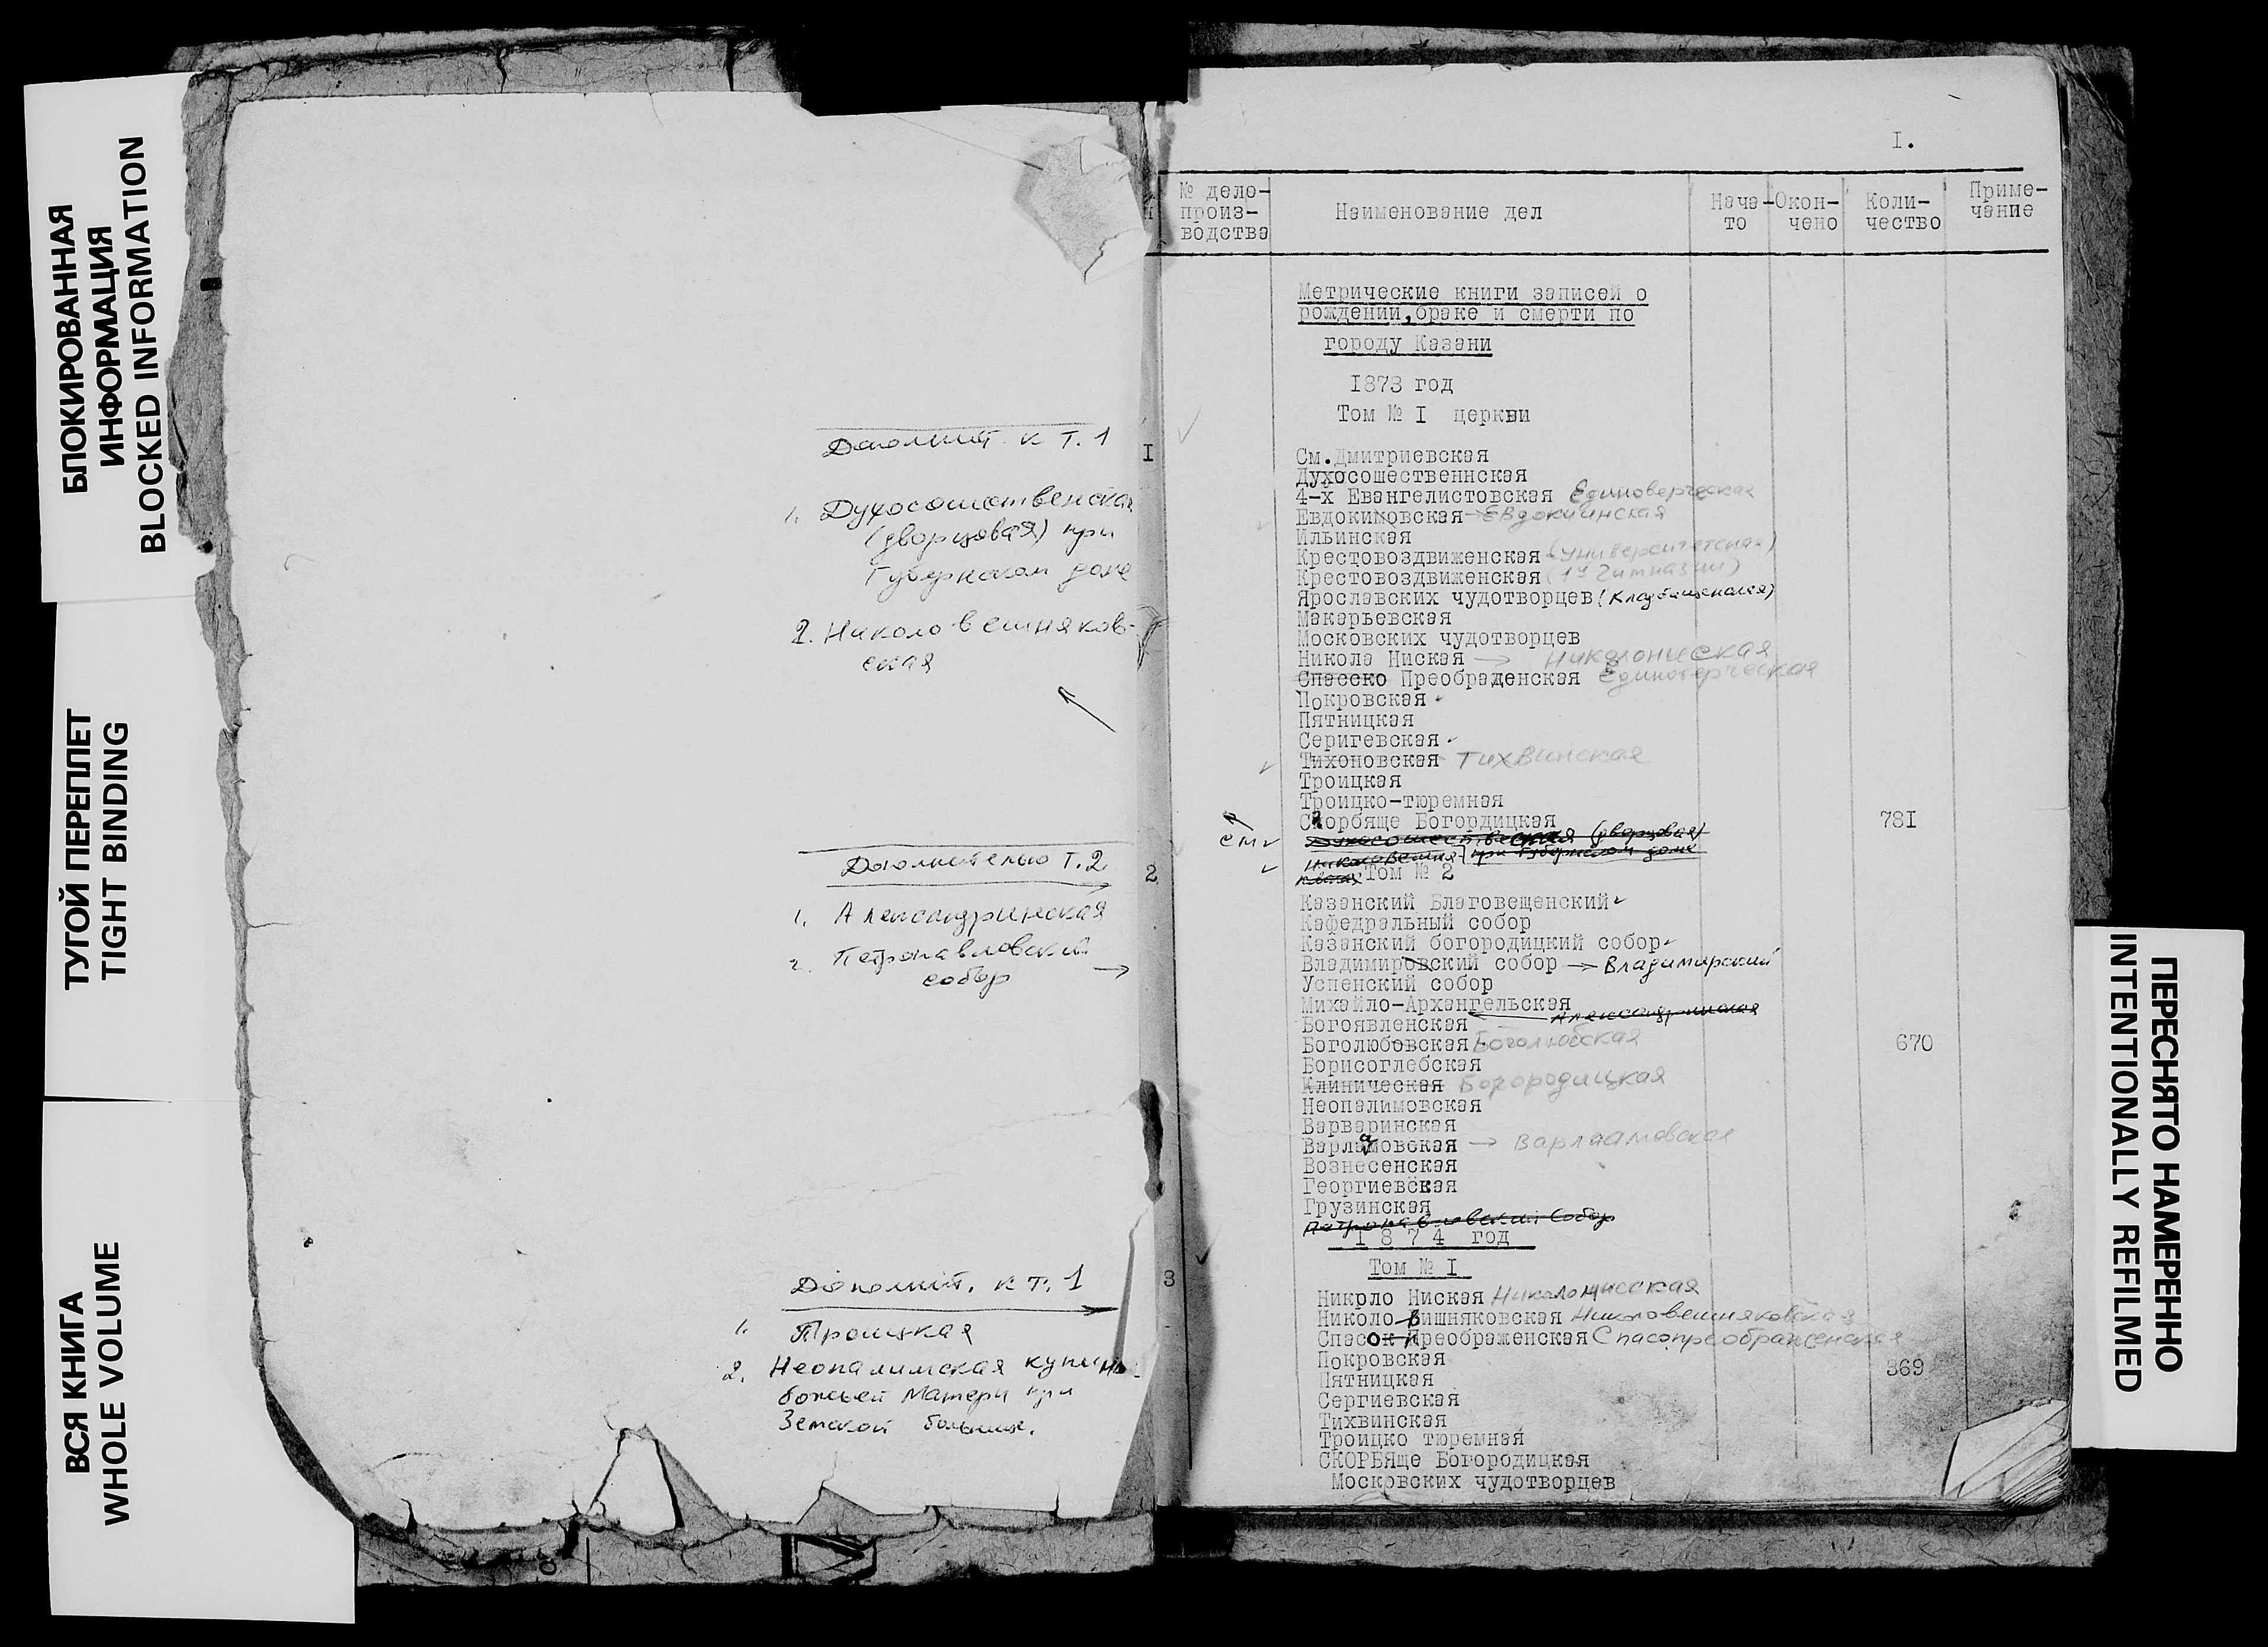 БЛОКИРОВАННАЯ
ИНФОРМАЦИЯ
BLOCKED INFORMATION
ТУГОЙ ПЕРЕПЛЕТ
TIGHT BINDING
ВСЯ КНИГА
WHOLE VOLUME
Дополнит. к Т. 1
1. Духосошественская
(дворцовая) при
Губернском доме
2. Николо-вешняков-
ская
Дополнительно Т.2.
1. Александринская
2. Петропавловский
собор →
Дополнит. к т. 1
1. Троицкая
2. Неопалимская купина
божьей Матери при
Земской больнице.
I.
№ дело-
произ-
водства
Наименование дел
Нача-
то
Окон-
чено
Коли-
чество
Приме-
чание
Метрические книги записей о
рождении, браке и смерти по
городу Казани
I873 год
I Том № I церкви
См.Дмитриевская
Духосошественнская
4-х Евангелистовская Единоверческая
Евдокимовская → Евдокиинская
Ильинская
Крестовоздвиженская (университетская)
Крестовоздвиженская (1й гимназии)
Ярославских чудотворцев (кладбищенская)
Макарьевская
Московских чудотворцев
Никола Ниская → Николониская
Спасско Преобраденская Единоверческая
Покровская
Пятницкая
Серигевская
Тихоновская Тихвинская
Троицкая
Троицко-тюремная
Скорбяще Богордицкая 78I
см Духосошественская (дворцовая)
при Губернском доме
2 Том № 2
Казанский Благовещенский
Кафедральный собор
Казанский богородицкий собор
Владимировский собор → Владимирский
Успенский собор
Михайло-Архангельская
Александринская
Богоявленская
Боголюбовская Боголюбская 670
Борисоглебская
Клиническая Богородицкая
Неопалимовская
Варваринская
Варламовская → Варлаамовская
Вознесенская
Георгиевская
Грузинская
Петропавловский собор
I 8 7 4 год
3 Том № I
Никрло Ниская Николониская
Николо-Вишняковская Николовешняковская
Спасок Преображенская Спасопреображенская
Покровская
Пятницкая 369
Сергиевская
Тихвинская
Троицко тюремная
СКОРБЯще Богородицкая
Московских чудотворцев
ПЕРЕСНЯТО НАМЕРЕННО
INTENTIONALLY REFILMED